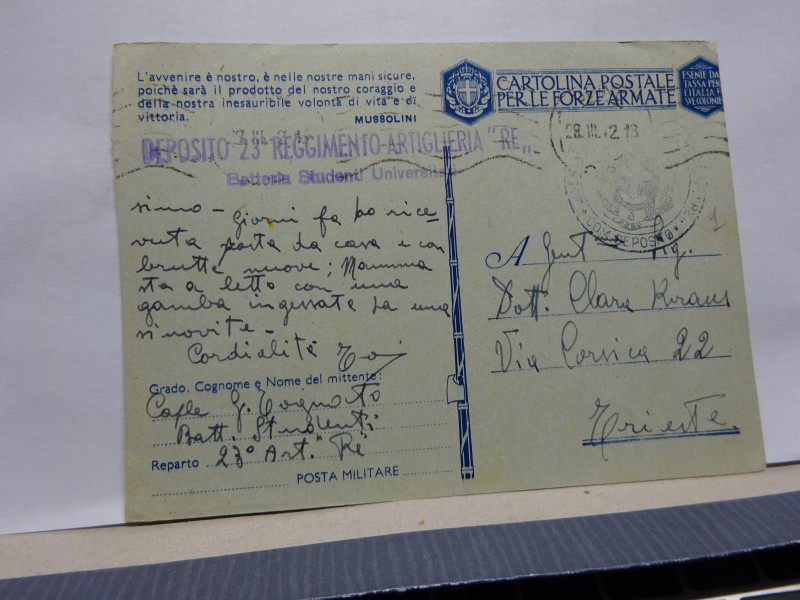 L'avvenire è nostro, è nelle nostre mani sicure,
poichè sarà il prodotto del nostro coraggio e
della nostra inesauribile volontà di vita e di
vittoria.
MUSSOLINI
CARTOLINA POSTALE
PER LE FORZE ARMATE
ESENTE DA
TASSA PER
L'ITALIA E
SUE COLONIE
DEPOSITO 23° REGGIMENTO ARTIGLIERIA "RE"
Batteria Studenti Universitari
28.III.42.18
COM. DEPOSITO
1
simo - giorni fa ho rice-
vuta posta da casa e con
brutte nuove; Mamma
sta a letto con una
gamba ingessata da una
sinovite -
Cordialità
Grado, Cognome e Nome del mittente:
Caple G. Cognato
Batt. Studenti
Reparto 23° Art. "Re"
POSTA MILITARE
A Gent. Sig.
Dott. Clara Kraus
Via Corsica 22
Trieste